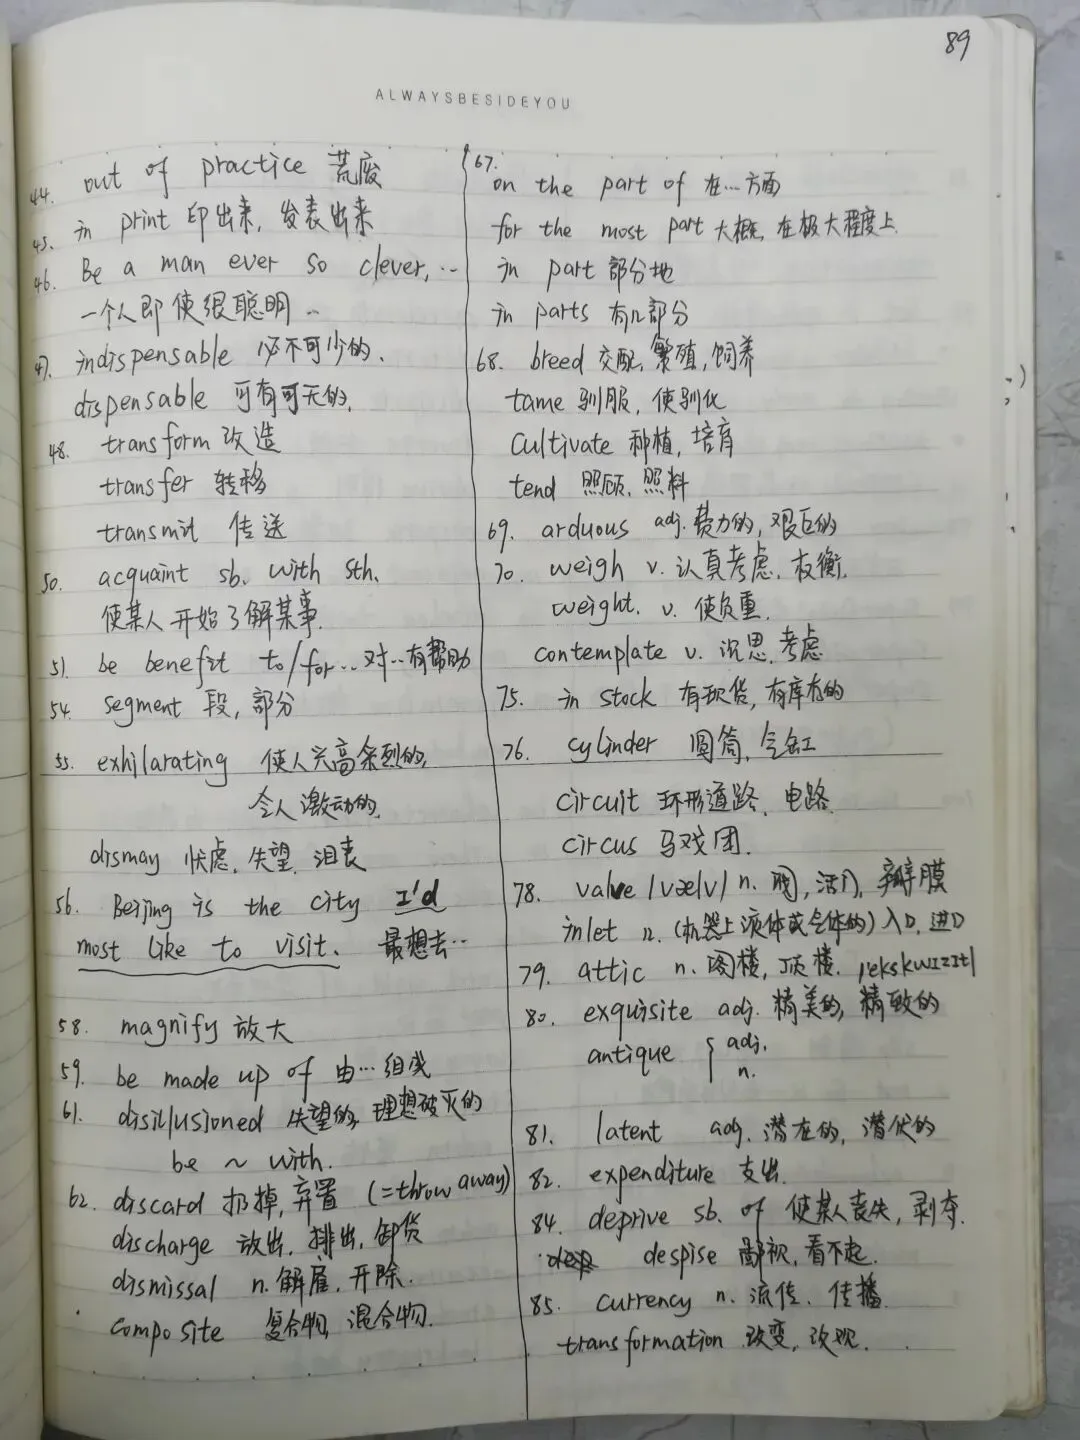 89
ALWAYSBESIDEYOU
44. out of practice 荒废
45. in print 印出来, 发表出来
46. Be a man ever so clever, …
一个人即使很聪明 …
47. indispensable 必不可少的.
dispensable 可有可无的.
48. transform 改造
transfer 转移
transmit 传送
50. acquaint sb. with sth.
使某人开始了解某事.
51. be benefit to/for … 对…有帮助
54. segment 段, 部分
55. exhilarating 使人兴高采烈的,
令人激动的.
dismay 忧虑, 失望, 沮丧
56. Beijing is the city I'd
most like to visit. 最想去…
58. magnify 放大
59. be made up of 由…组成
61. disillusioned 失望的, 理想破灭的
be ~ with.
62. discard 扔掉, 弃置 (=throw away)
discharge 放出, 排出, 卸货
dismissal n. 解雇, 开除.
composite 复合物, 混合物.
67.
on the part of 在…方面
for the most part 大概, 在极大程度上.
in part 部分地
in parts 有几部分
68. breed 交配, 繁殖, 饲养
tame 驯服, 使驯化
cultivate 种植, 培育
tend 照顾, 照料
69. arduous adj. 费力的, 艰巨的
70. weigh v. 认真考虑, 权衡.
weight. v. 使负重.
contemplate v. 沉思, 考虑
75. in stock 有现货, 有库存的
76. cylinder 圆筒, 气缸
circuit 环形道路, 电路
circus 马戏团.
78. valve /vælv/ n. 阀, 活门, 瓣膜
inlet n. (机器上液体或气体的) 入口, 进口
79. attic n. 阁楼, 顶楼. /'ekskwɪzɪt/
80. exquisite adj. 精美的, 精致的
antique { adj.
n.
81. latent adj. 潜在的, 潜伏的
82. expenditure 支出.
84. deprive sb. of 使某人丧失, 剥夺.
despise 鄙视, 看不起.
85. currency n. 流传, 传播.
transformation 改变, 改观.